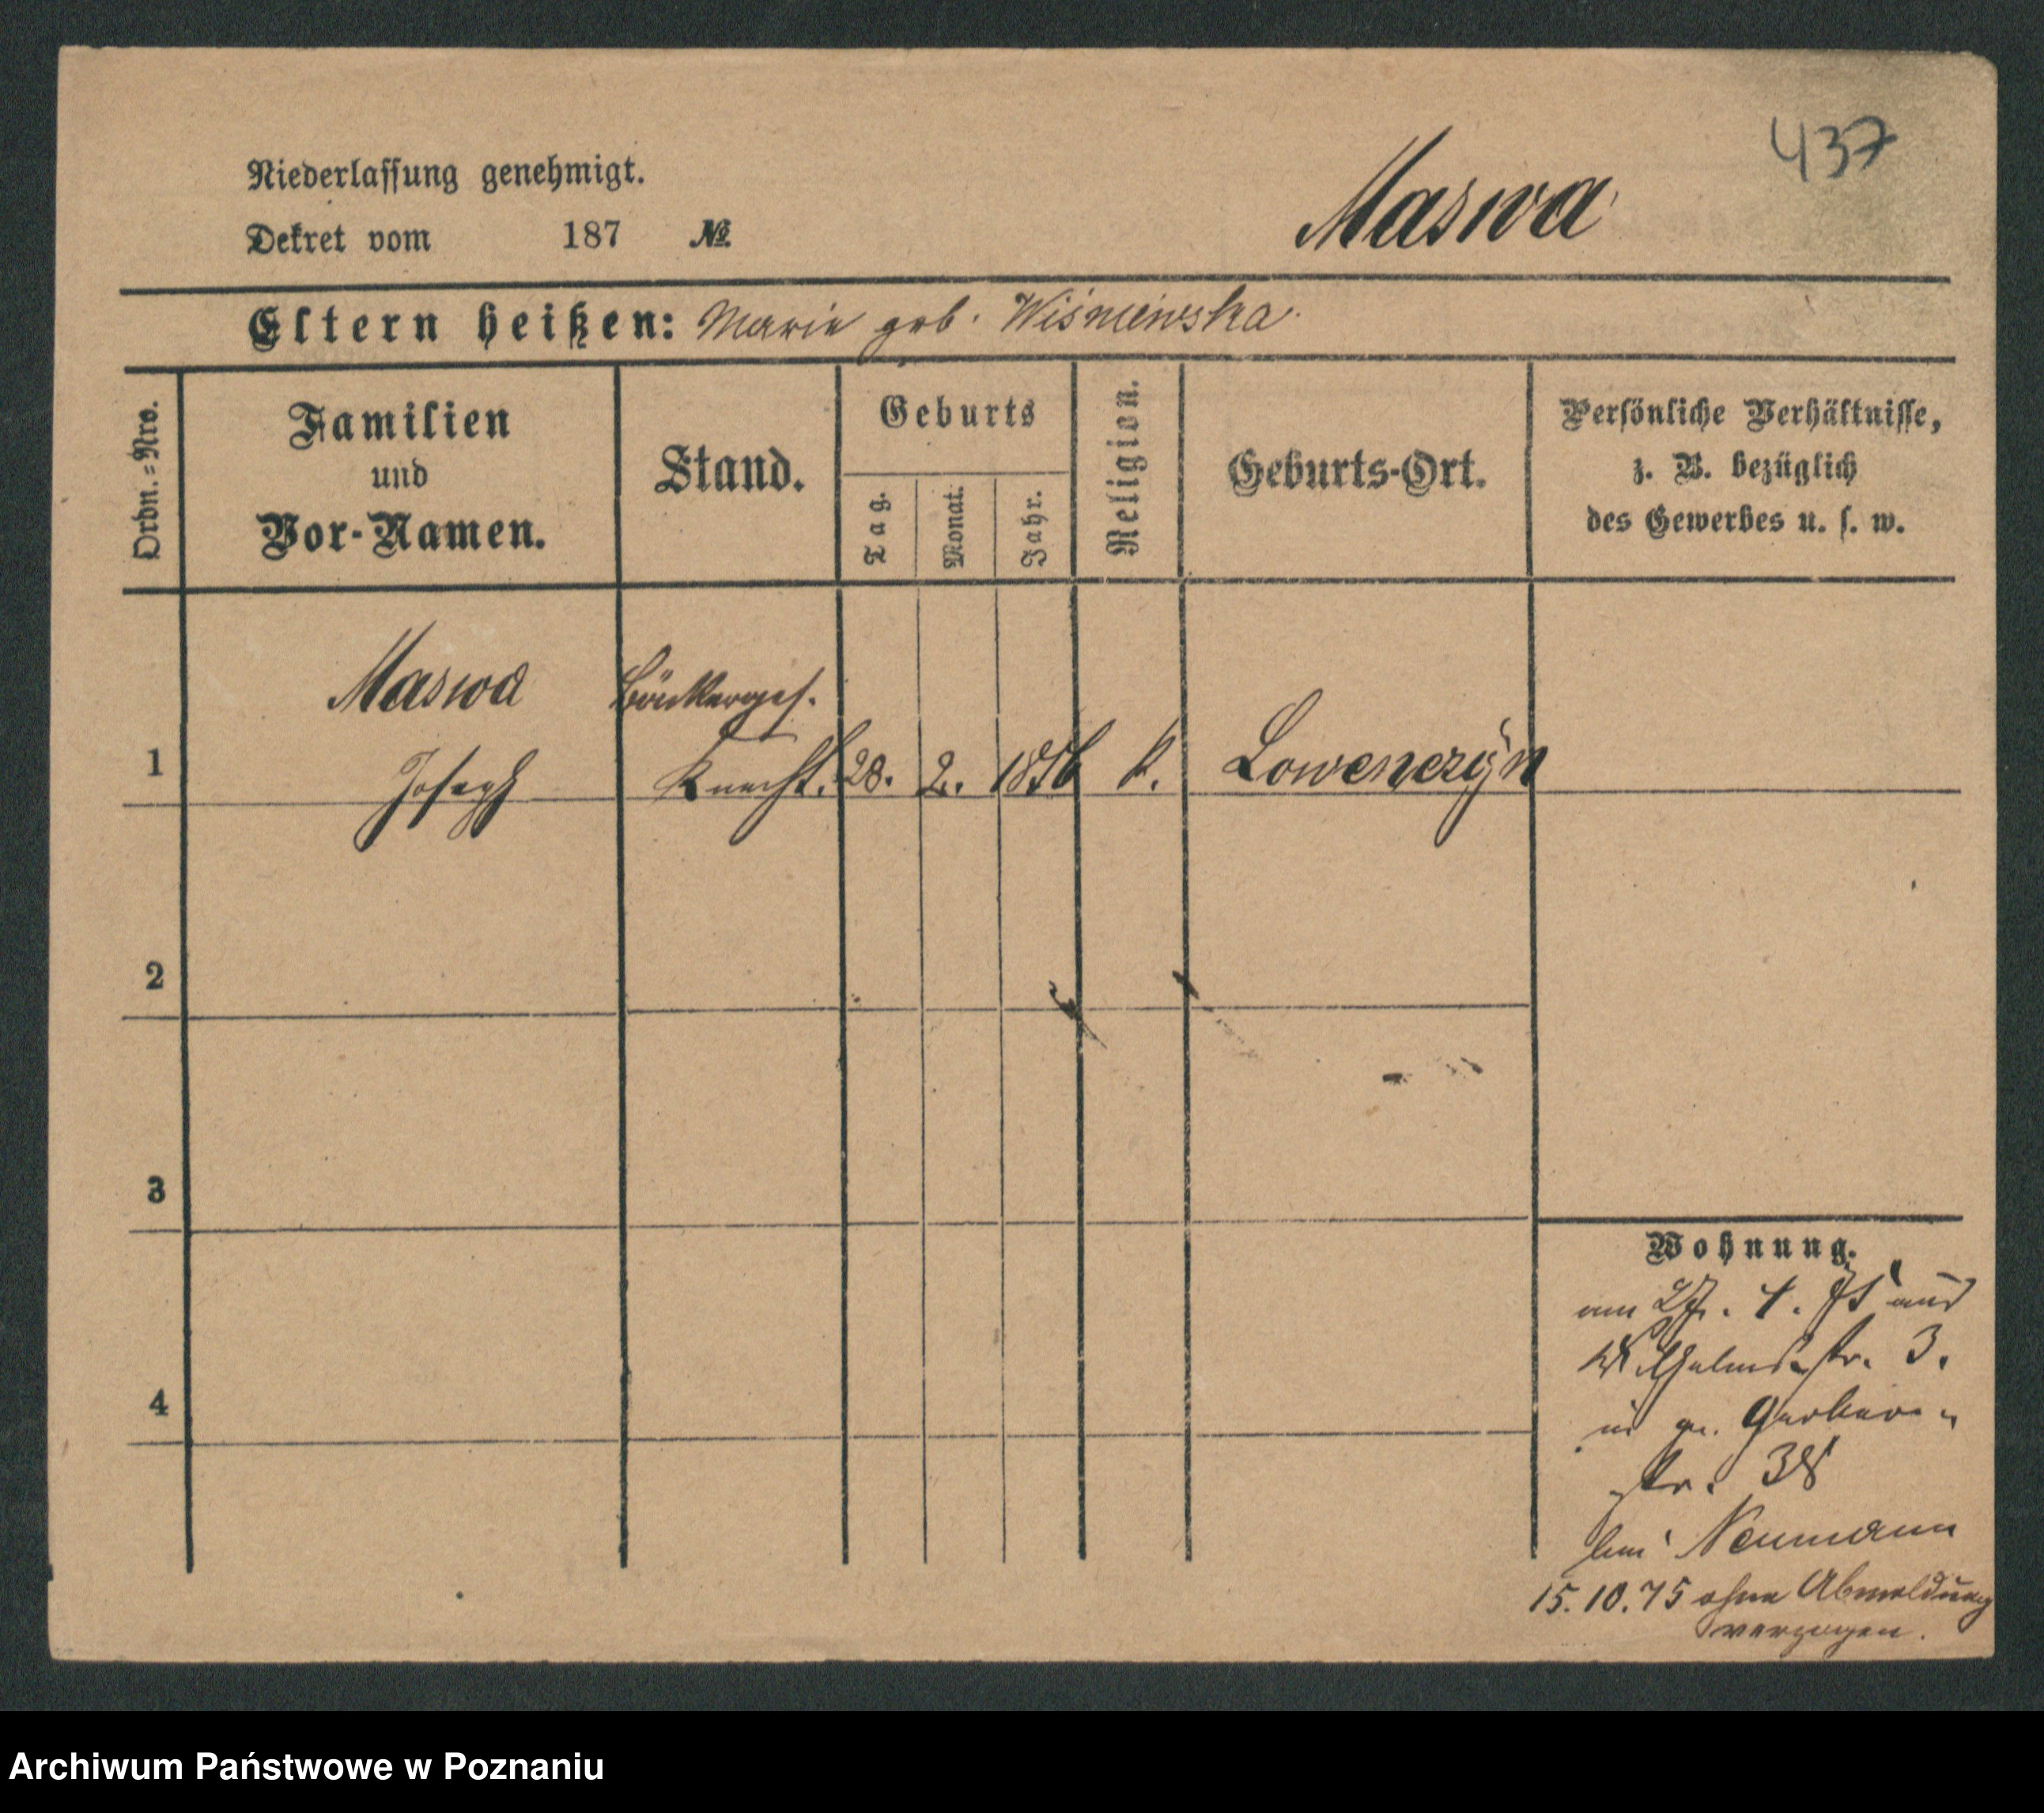 437
Niederlassung genehmigt.
Dekret vom 187 №
Maswa
Eltern heißen: Marie geb. Wiśniewska.
Ordn.=Nro.
Familien
und
Vor-Namen.
Stand.
Geburts
Tag.
Monat.
Jahr.
Religion.
Geburts-Ort.
Persönliche Verhältnisse,
z. B. bezüglich
des Gewerbes u. s. w.
Maswa Bäckerges.
1 Joseph Knecht. 28. 2. 1856 k. Lowenczyn
2
3
4
Wohnung.
am 27. 4. 75 aus
Wilhelmsstr. 3.
in gr. Gerber-
str. 38
bei Neumann
15.10.75 ohne Abmeldung
verzogen.
Archiwum Państwowe w Poznaniu